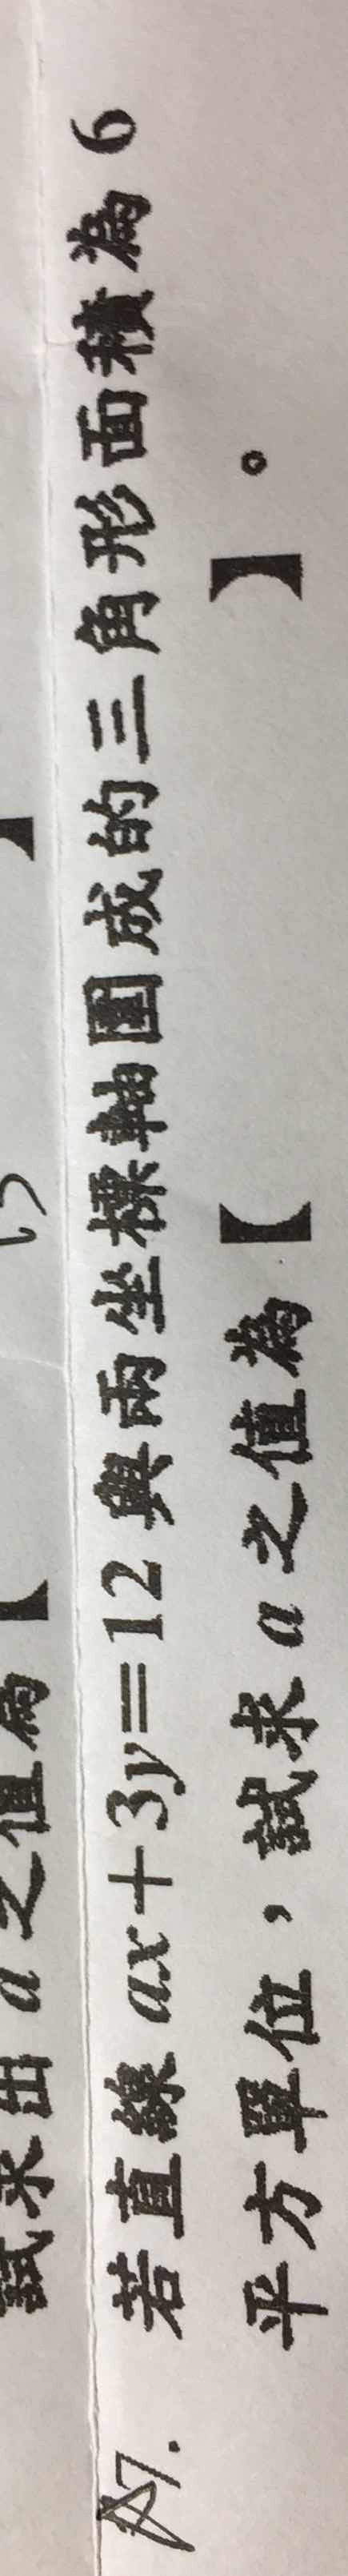 試求出 a 之值為【 】
7. 若直線 ax＋3y＝12 與兩坐標軸圍成的三角形面積為 6
平方單位，試求 a 之值為【 】。